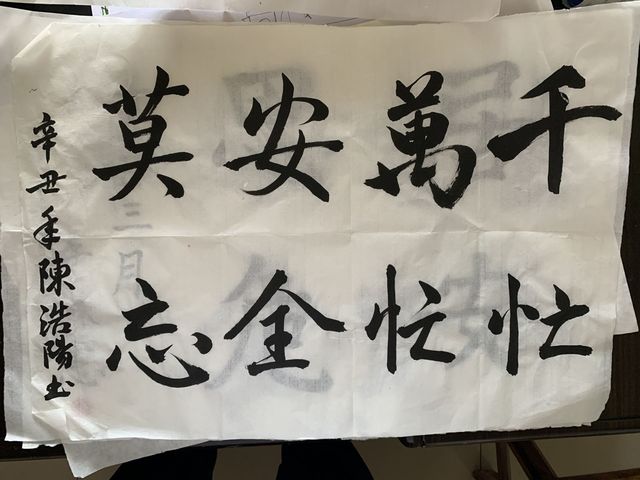 千忙
萬忙
安全
莫忘
辛丑年陳浩陽书